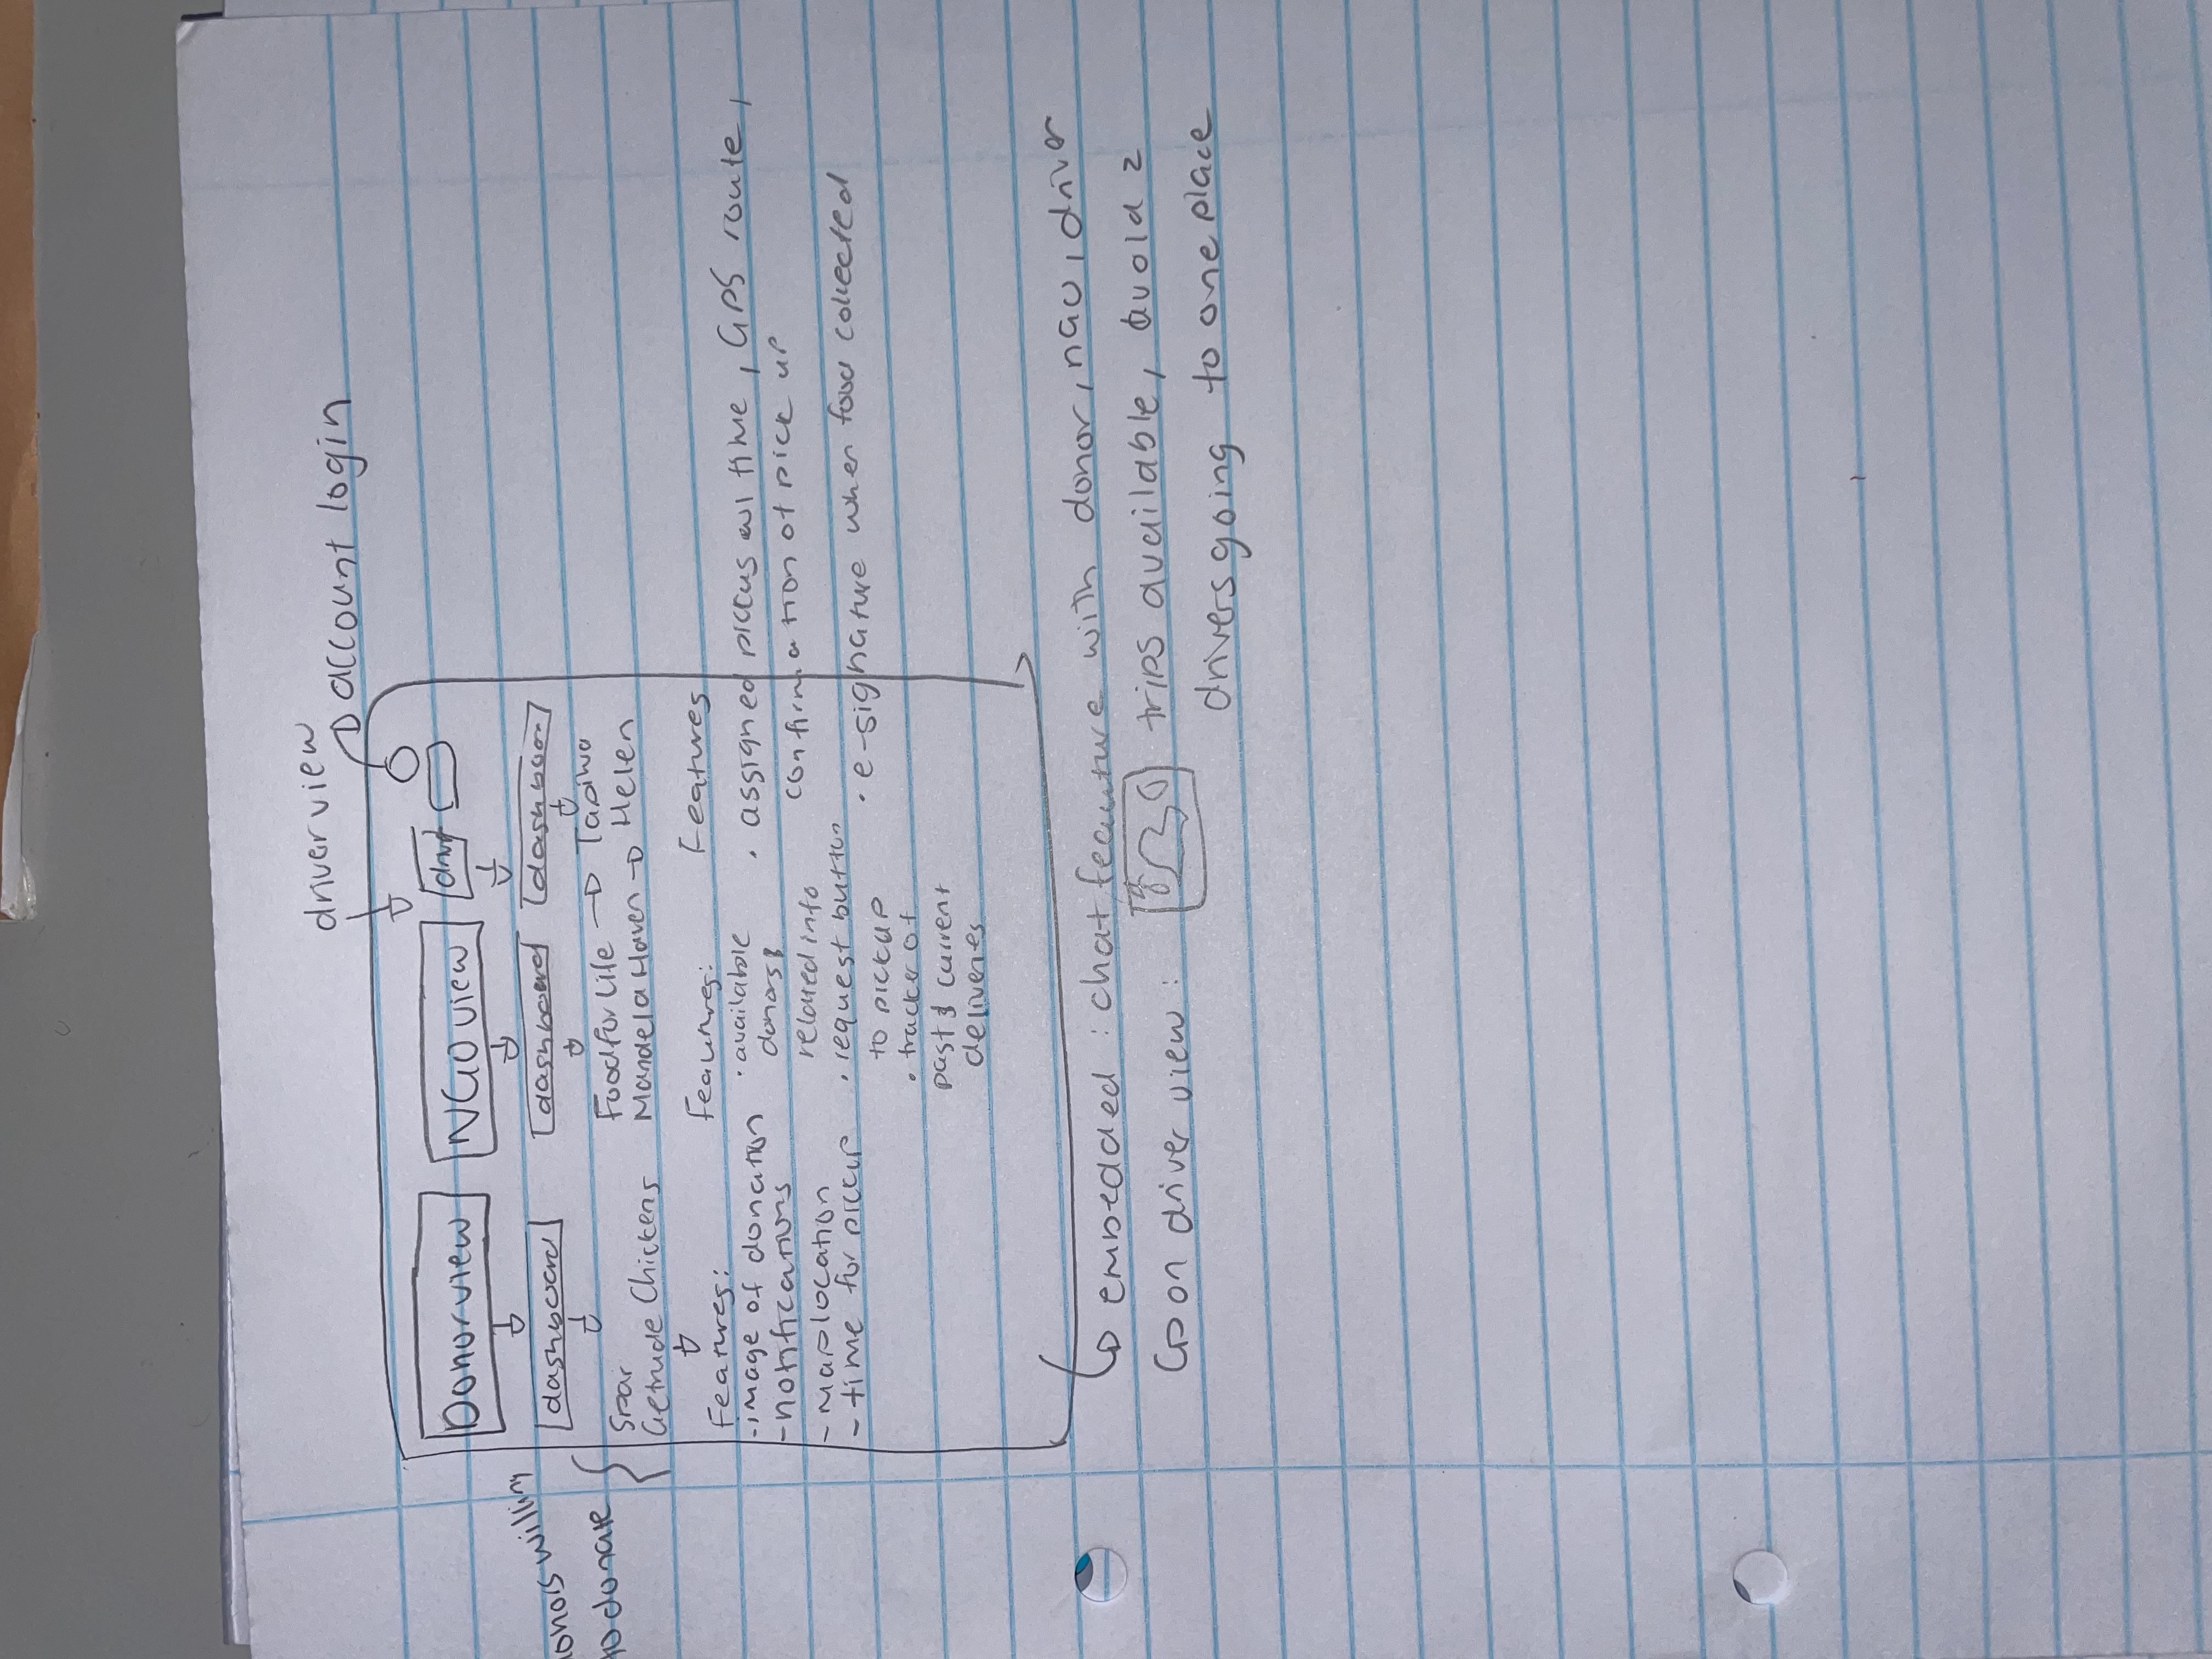 driver view
account login
Donor view
NGO view
driv
dashboard
dashboard
dashboard
donors willing
to donate
Spar
Getrude Chickens
Food for Life → Tapiwa
Mandela Haven → Helen
Features:
- image of donation
- notifications
- map location
- time for pickup
Features:
• available
donors &
related info
• request button
to pickup
• tracker of
past & current
deliveries
Features
• assigned pickups w/ time, GPS route,
confirmation of pick up
• e-signature when food collected
embedded : chat feature with donor, ngo, driver
on driver view : trips available, avoid 2
drivers going to one place